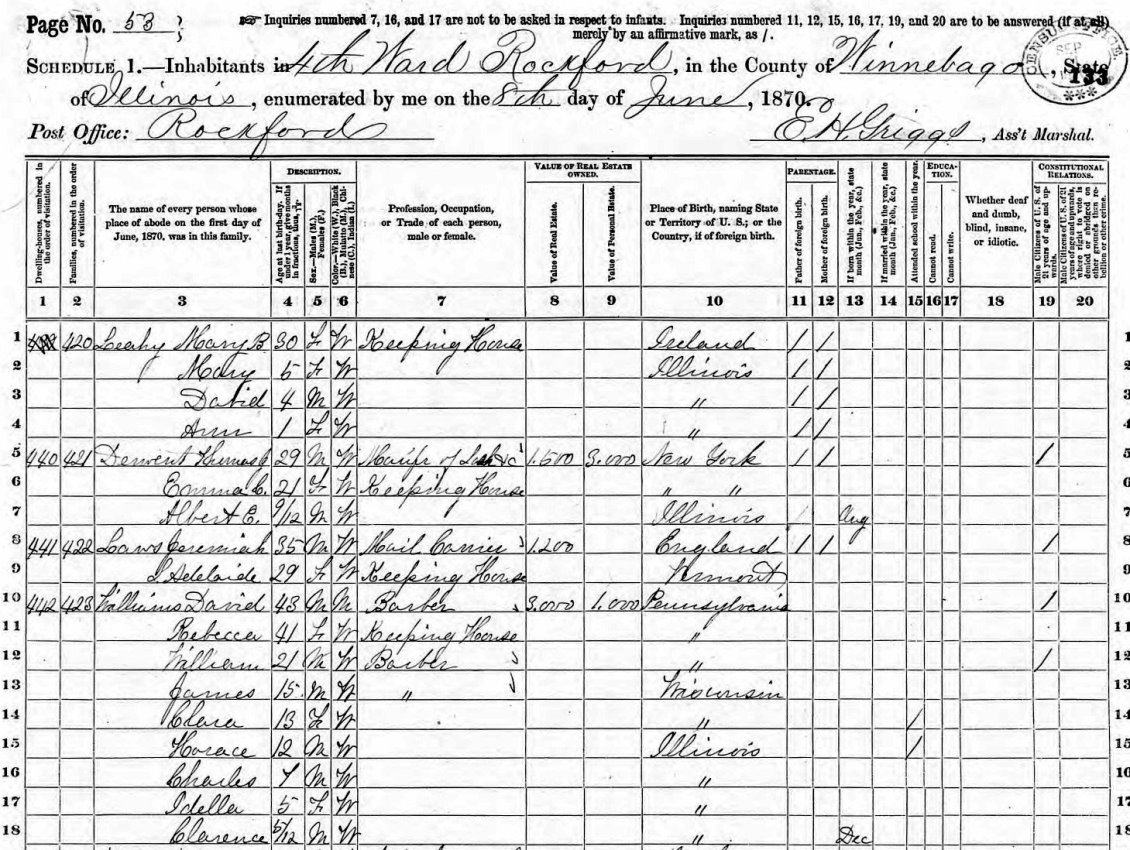 Page No. 53
☞ Inquiries numbered 7, 16, and 17 are not to be asked in respect to infants. Inquiries numbered 11, 12, 15, 16, 17, 19, and 20 are to be answered (if at all)
merely by an affirmative mark, as /.
SCHEDULE 1.—Inhabitants in 4th Ward Rockford, in the County of Winnebago, State
133
of Illinois, enumerated by me on the 8th day of June, 1870.
Post Office: Rockford E H Griggs, Ass't Marshal.
Dwelling-houses, numbered in the order of visitation.
Families, numbered in the order of visitation.
The name of every person whose place of abode on the first day of June, 1870, was in this family.
DESCRIPTION.
Age at last birth-day. If under 1 year, give months in fractions, thus,
Sex.—Males (M.), Females (F.)
Color.—White (W.), Black (B.), Mulatto (M.), Chinese (C.), Indian (I.)
Profession, Occupation, or Trade of each person, male or female.
VALUE OF REAL ESTATE OWNED.
Value of Real Estate.
Value of Personal Estate.
Place of Birth, naming State or Territory of U. S.; or the Country, if of foreign birth.
PARENTAGE.
Father of foreign birth.
Mother of foreign birth.
If born within the year, state month (Jan., Feb., &c.)
If married within the year, state month (Jan., Feb., &c.)
Attended school within the year.
EDUCATION.
Cannot read.
Cannot write.
Whether deaf and dumb, blind, insane, or idiotic.
CONSTITUTIONAL RELATIONS.
Male Citizens of U. S. of 21 years of age and upwards.
Male Citizens of U. S. of 21 years of age and upwards, whose right to vote is denied or abridged on other grounds than rebellion or other crime.
1 2 3 4 5 6 7 8 9 10 11 12 13 14 15 16 17 18 19 20
1 420 Leahy Mary B 30 F W Keeping House Ireland / / 1
2 Mary 5 F W Illinois / / 2
3 David 4 M W " / / 3
4 Ann 1 F W " / / 4
5 440 421 Derwent Thomas 29 M W Manfr of 1.500 3.000 New York / / / 5
6 Emma C. 21 F W Keeping House " " 6
7 Albert E. 9/12 M W Illinois / Aug 7
8 441 422 Laws Jeremiah 35 M W Mail Carrier 1.200 England / / / 8
9 Adelaide 29 F W Keeping House Vermont 9
10 442 423 Williams David 43 M M Barber 3.000 1.000 Pennsylvania / 10
11 Rebecca 41 F W Keeping House " 11
12 William 21 M W Barber " / 12
13 James 15 M W " Wisconsin 13
14 Clara 13 F W " / 14
15 Horace 12 M W Illinois / 15
16 Charles 7 M W " 16
17 Idella 5 F W " 17
18 Clarence 5/12 M W " Dec 18